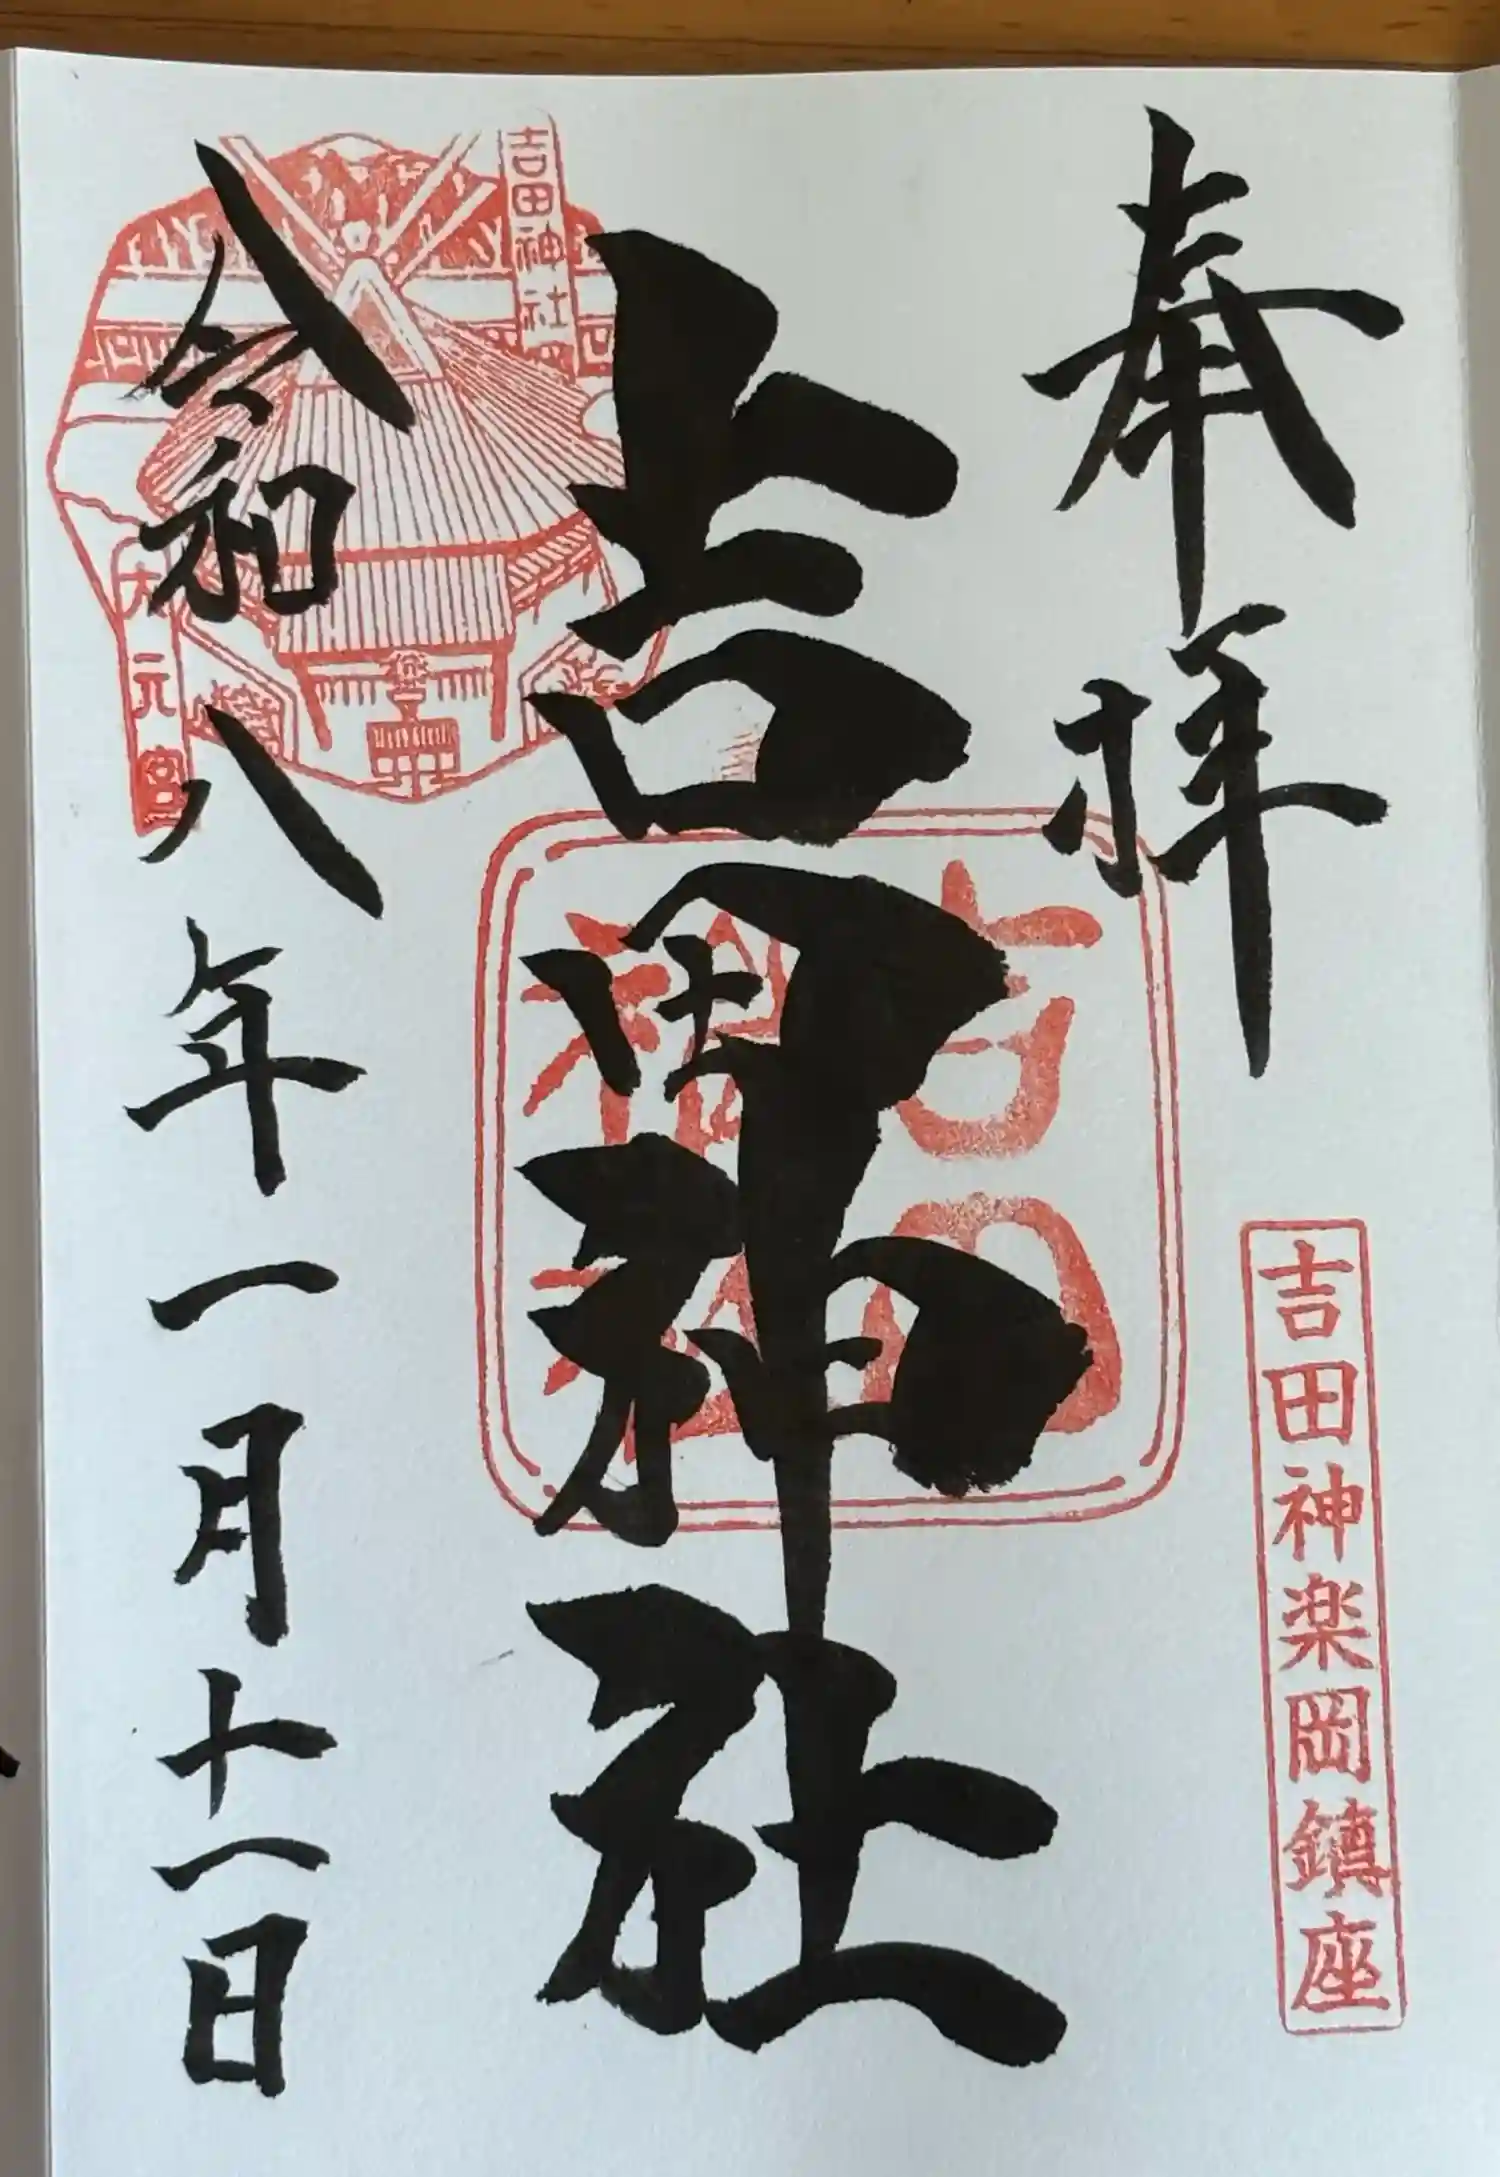 奉拝
吉田神楽岡鎮座
吉田神社
吉田神社
吉田神社
大元宮
令和八年一月十一日